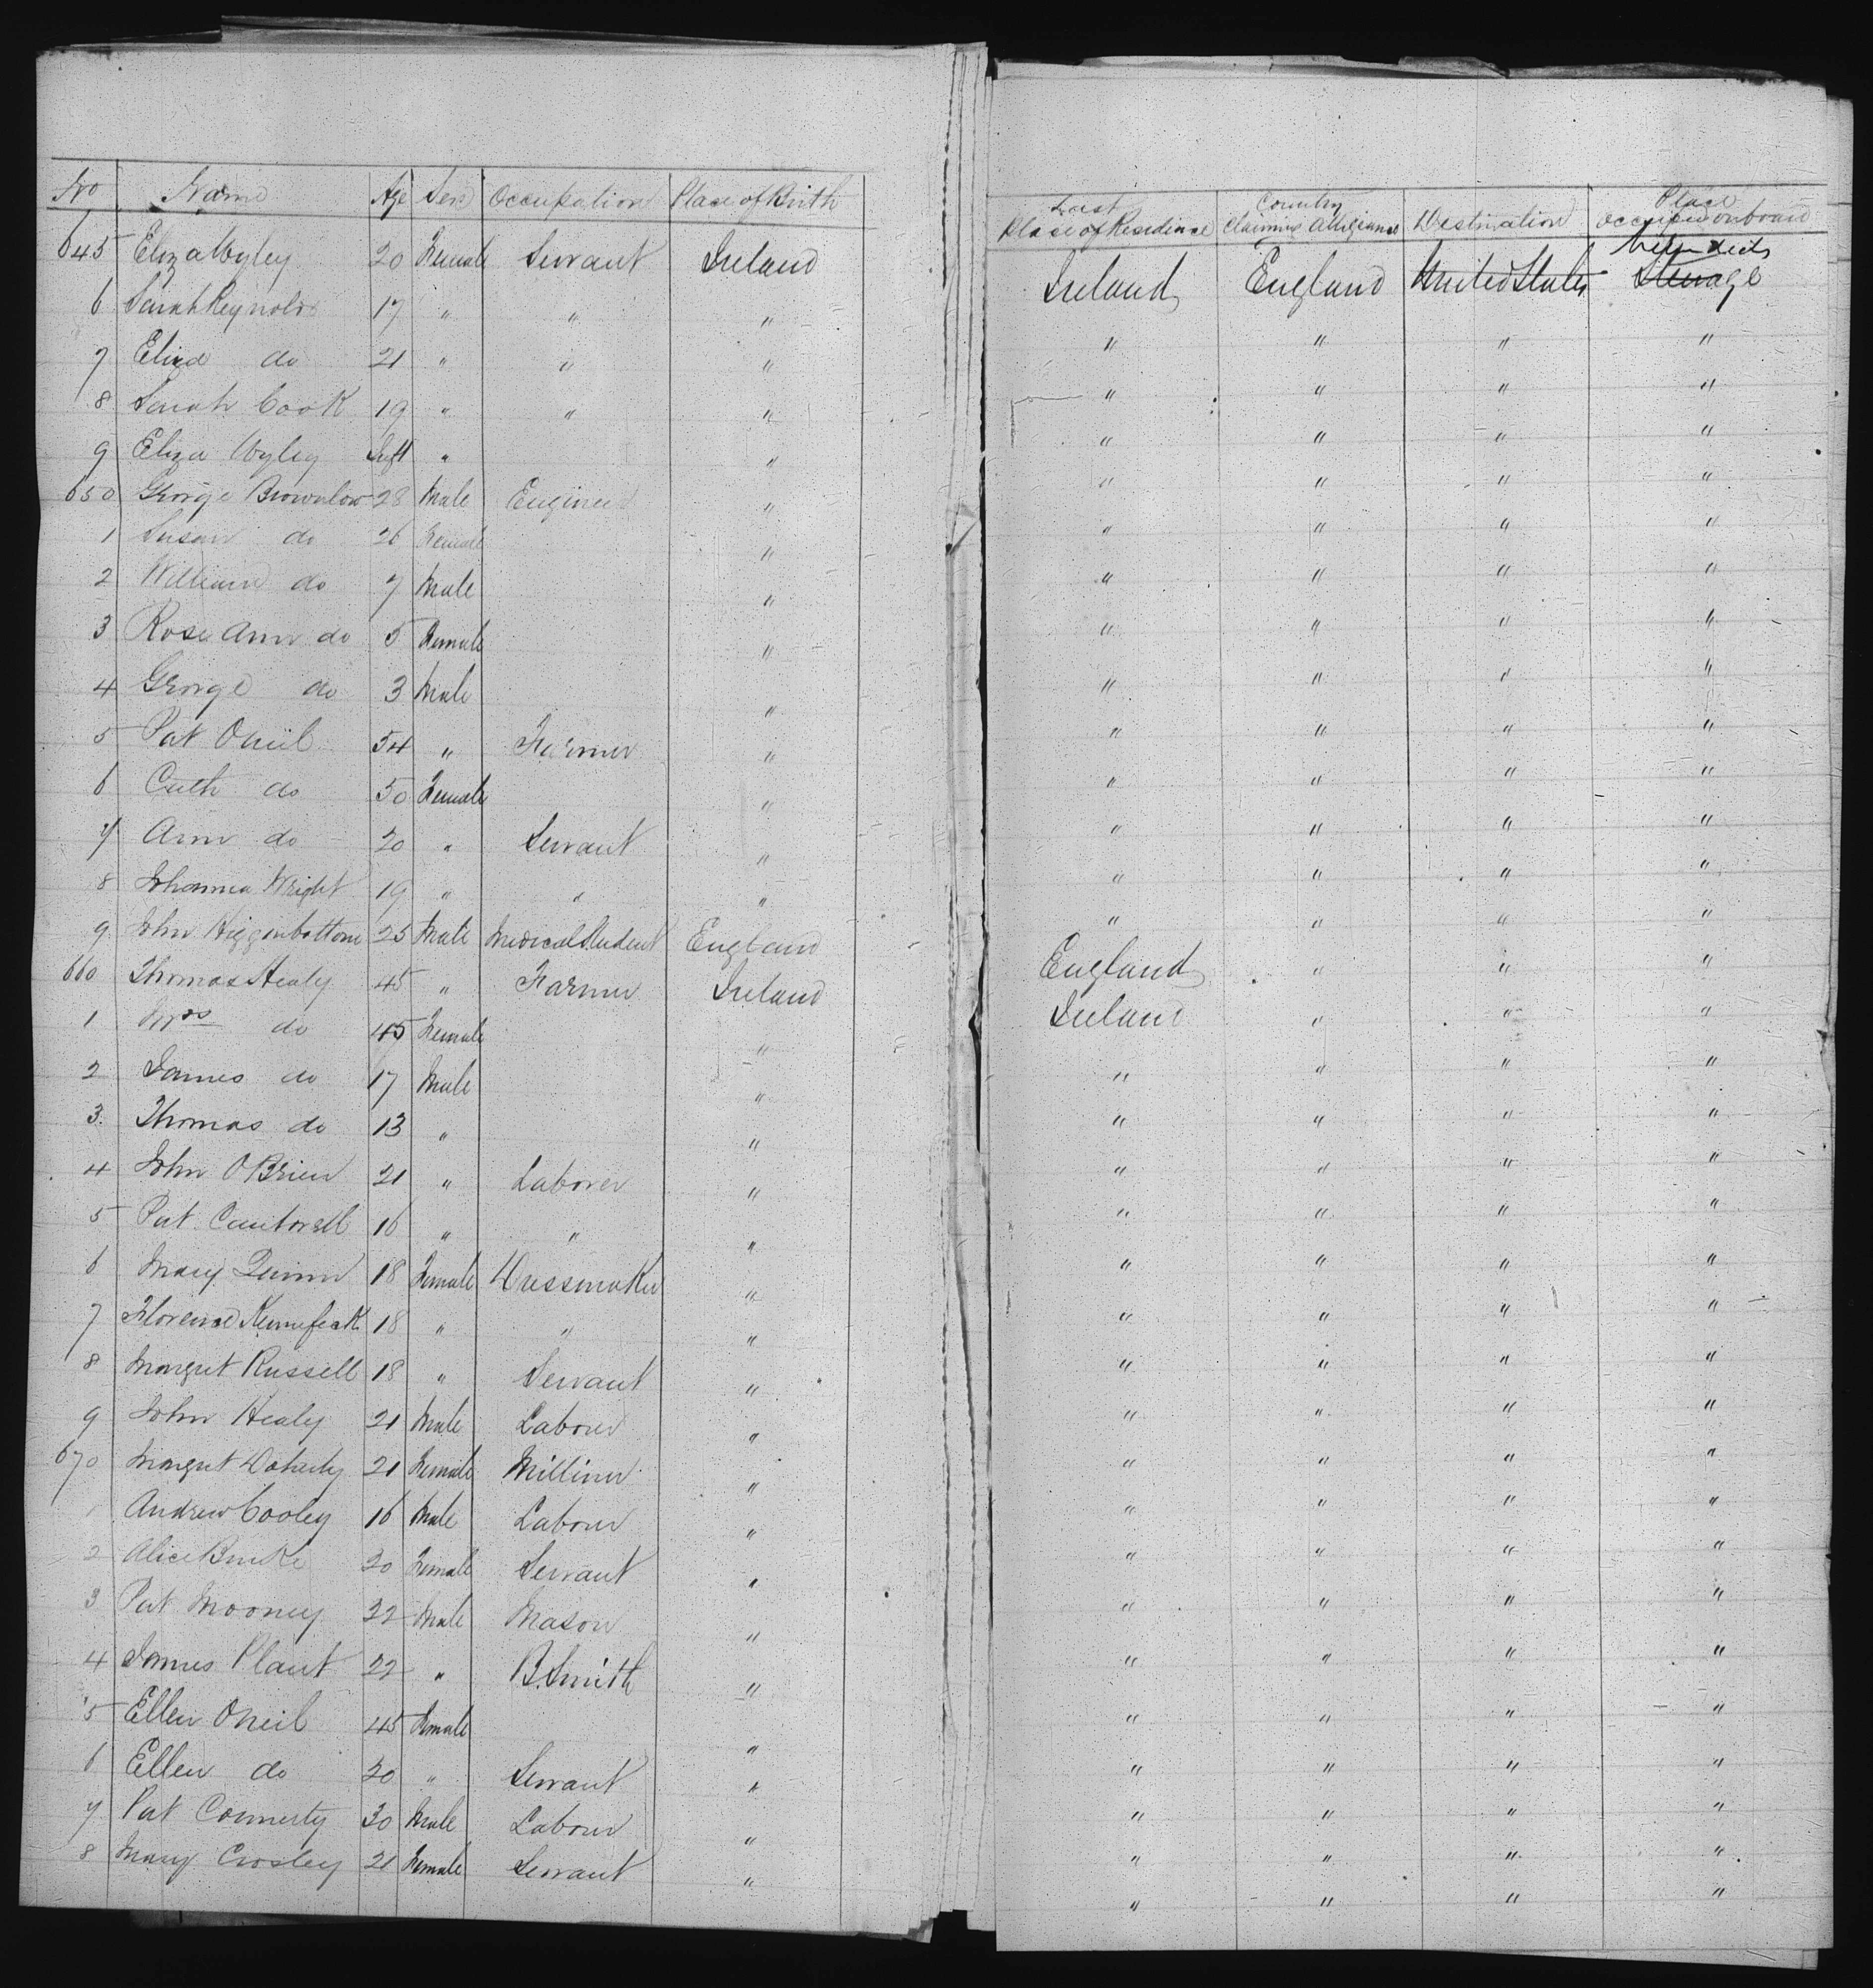 No Name Age Sex Occupation Place of Birth
Last Place of Residence Country Claiming Allegiance Destination Place occupied on board
645 Eliza Wyley 20 Female Servant Ireland Ireland England United States Steerage
6 Sarah Reynolds 17 " " " " " " "
7 Eliza do 21 " " " " " " "
8 Sarah Cook 19 " " " " " " "
9 Eliza Wyley Inft " " " " " "
650 George Brownlow 28 Male Engineer " " " " "
1 Susan do 26 Female " " " " "
2 William do 7 Male " " " " "
3 Rose Ann do 5 Female " " " " "
4 George do 3 Male " " " " "
5 Pat Oneil 54 " Farmer " " " " "
6 Cath do 50 Female " " " " "
7 Ann do 20 " Servant " " " " "
8 Johanna Wright 19 " " " " " " "
9 John Higginbottom 25 Male Medical Student England England " " "
660 Thomas Healy 45 " Farmer Ireland Ireland " " "
1 Mrs do 45 Female " " " " "
2 James do 17 Male " " " " "
3 Thomas do 13 " " " " " "
4 John OBrien 21 " Laborer " " " " "
5 Pat Cantwell 16 " " " " " " "
6 Mary Quinn 18 Female Dressmaker " " " " "
7 Florence Kennefeak 18 " " " " " " "
8 Margret Russell 18 " Servant " " " " "
9 John Healy 21 Male Laborer " " " " "
670 Margret Doherty 21 Female Milliner " " " " "
1 Andrew Cooley 16 Male Laborer " " " " "
2 Alice Burke 20 Female Servant " " " " "
3 Pat Mooney 22 Male Mason " " " " "
4 James Plant 22 " B.Smith " " " " "
5 Ellen Oneil 45 Female " " " " "
6 Ellen do 20 " Servant " " " " "
7 Pat Connerty 30 Male Laborer " " " " "
8 Mary Crosley 21 Female Servant " " " " "